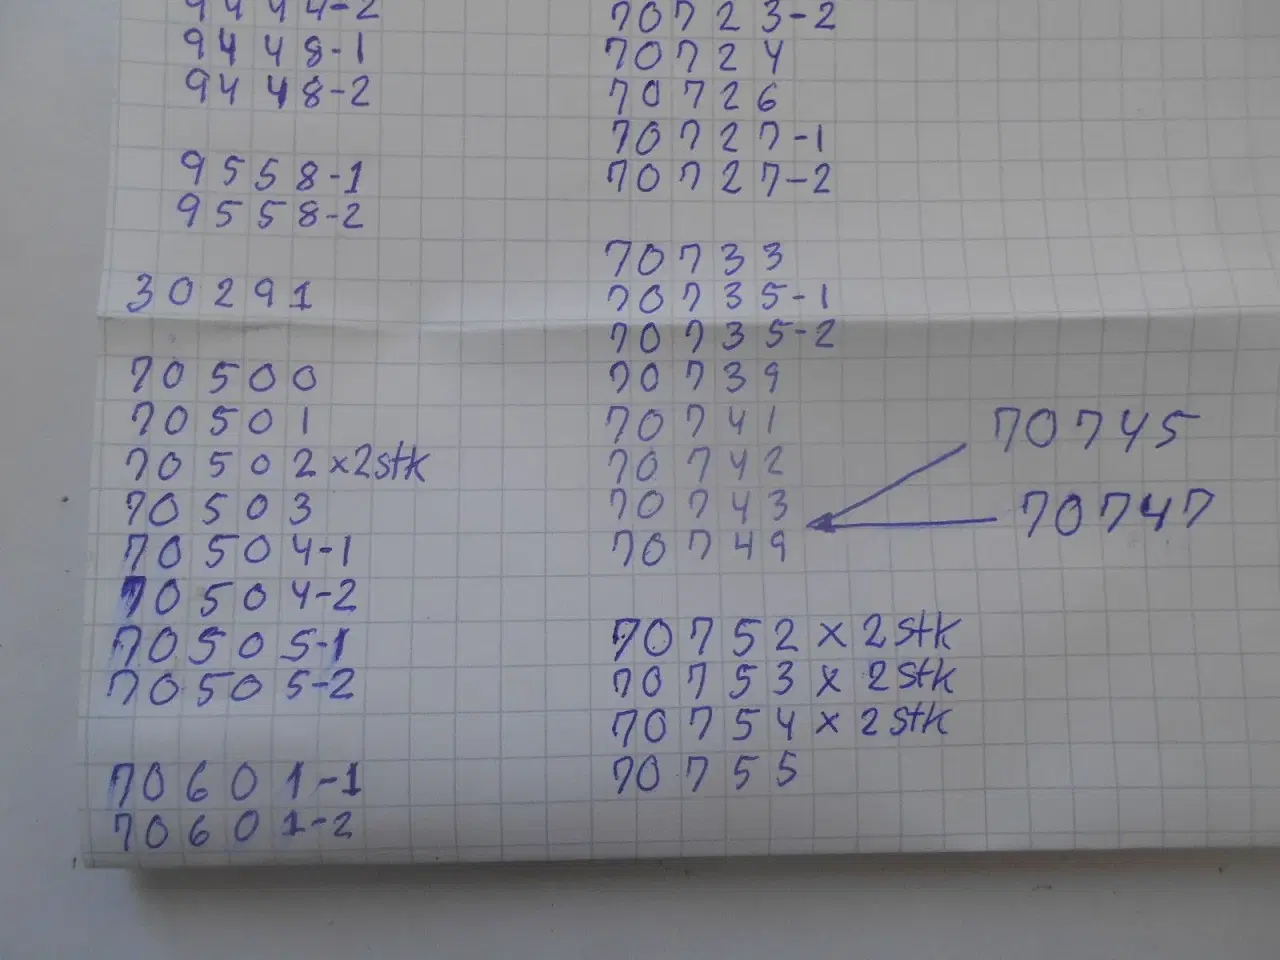 9444-2
9448-1
9448-2
9558-1
9558-2
30291
70500
70501
70502 x2stk
70503
70504-1
70504-2
70505-1
70505-2
70601-1
70601-2
70723-2
70724
70726
70727-1
70727-2
70733
70735-1
70735-2
70739
70741
70742
70743
70749
70752 x 2stk
70753 x 2stk
70754 x 2stk
70755
70745
70747